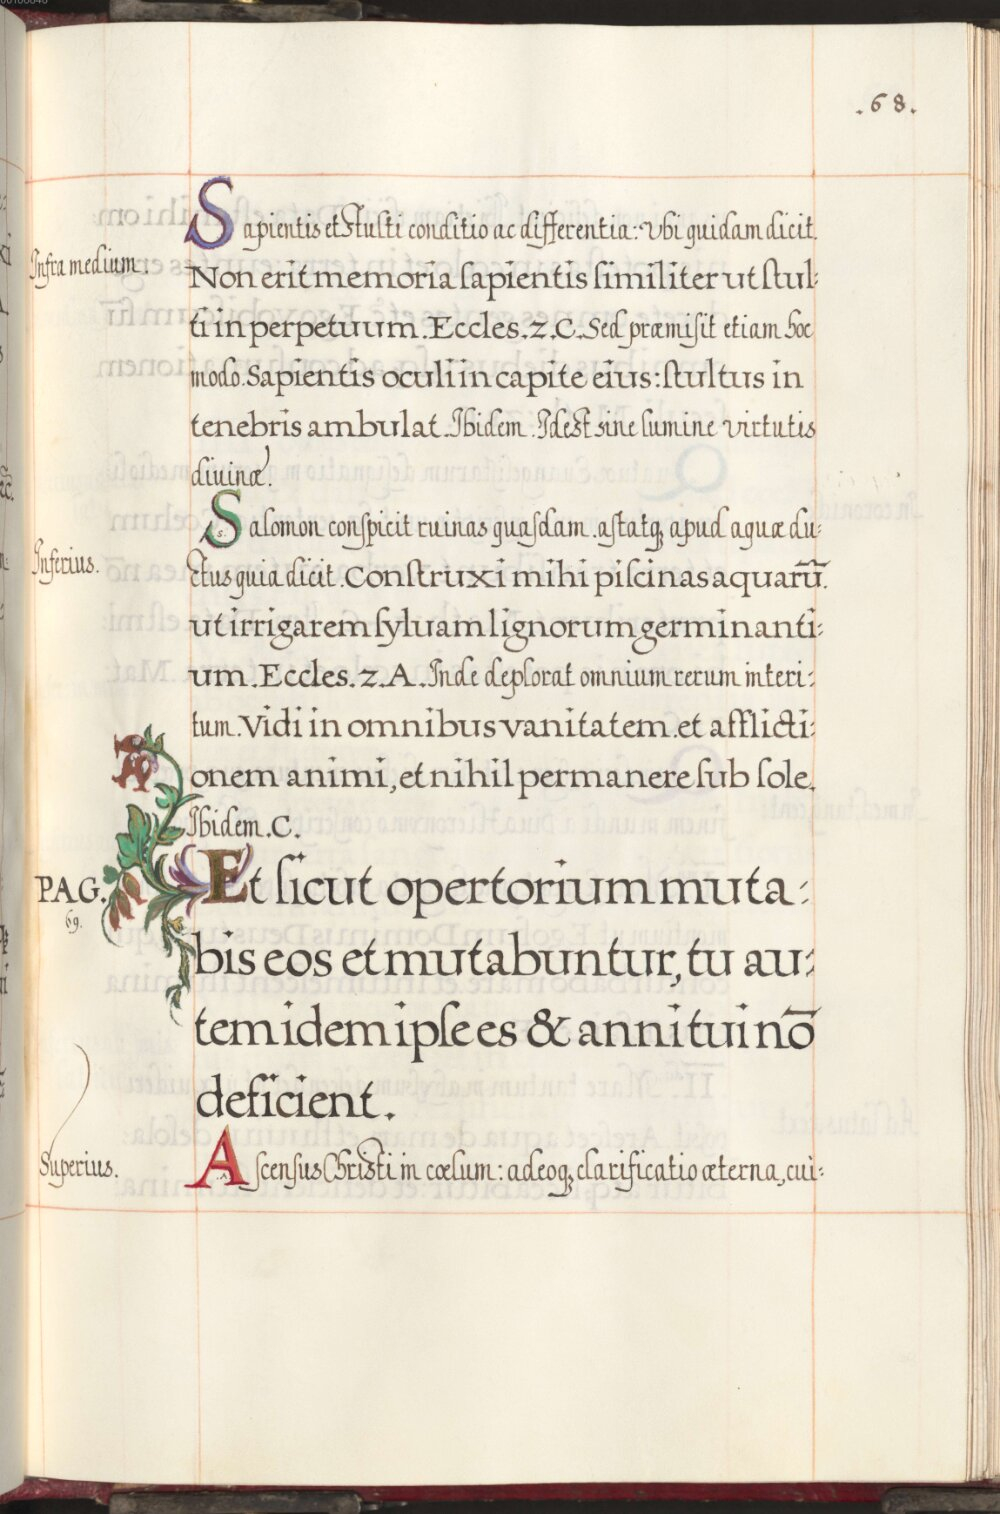 .68.
Sapientis et Stulti conditio ac differentia: Vbi quidam dicit.
Infra medium.
Non erit memoria sapientis similiter ut stul:
ti in perpetuum. Eccles. 2. C. Sed præmisit etiam hoc
modo. Sapientis oculi in capite eius: stultus in
tenebris ambulat. Ibidem. Id est sine lumine virtutis
diuinæ.
Salomon conspicit ruinas quasdam. astatq; apud aquæ du:
Inferius.
ctus quia dicit. Construxi mihi piscinas aquarū.
ut irrigarem syluam lignorum germinanti:
um. Eccles. 2. A. Inde deplorat omnium rerum interi:
tum. Vidi in omnibus vanitatem et afflicti:
onem animi, et nihil permanere sub sole.
Ibidem. C.
PAG.
69.
Et sicut opertorium muta:
bis eos et mutabuntur, tu au:
tem idem ipse es & anni tui nō
deficient.
Superius.
Ascensus Christi in cœlum: adeoq; clarificatio æterna, cui: